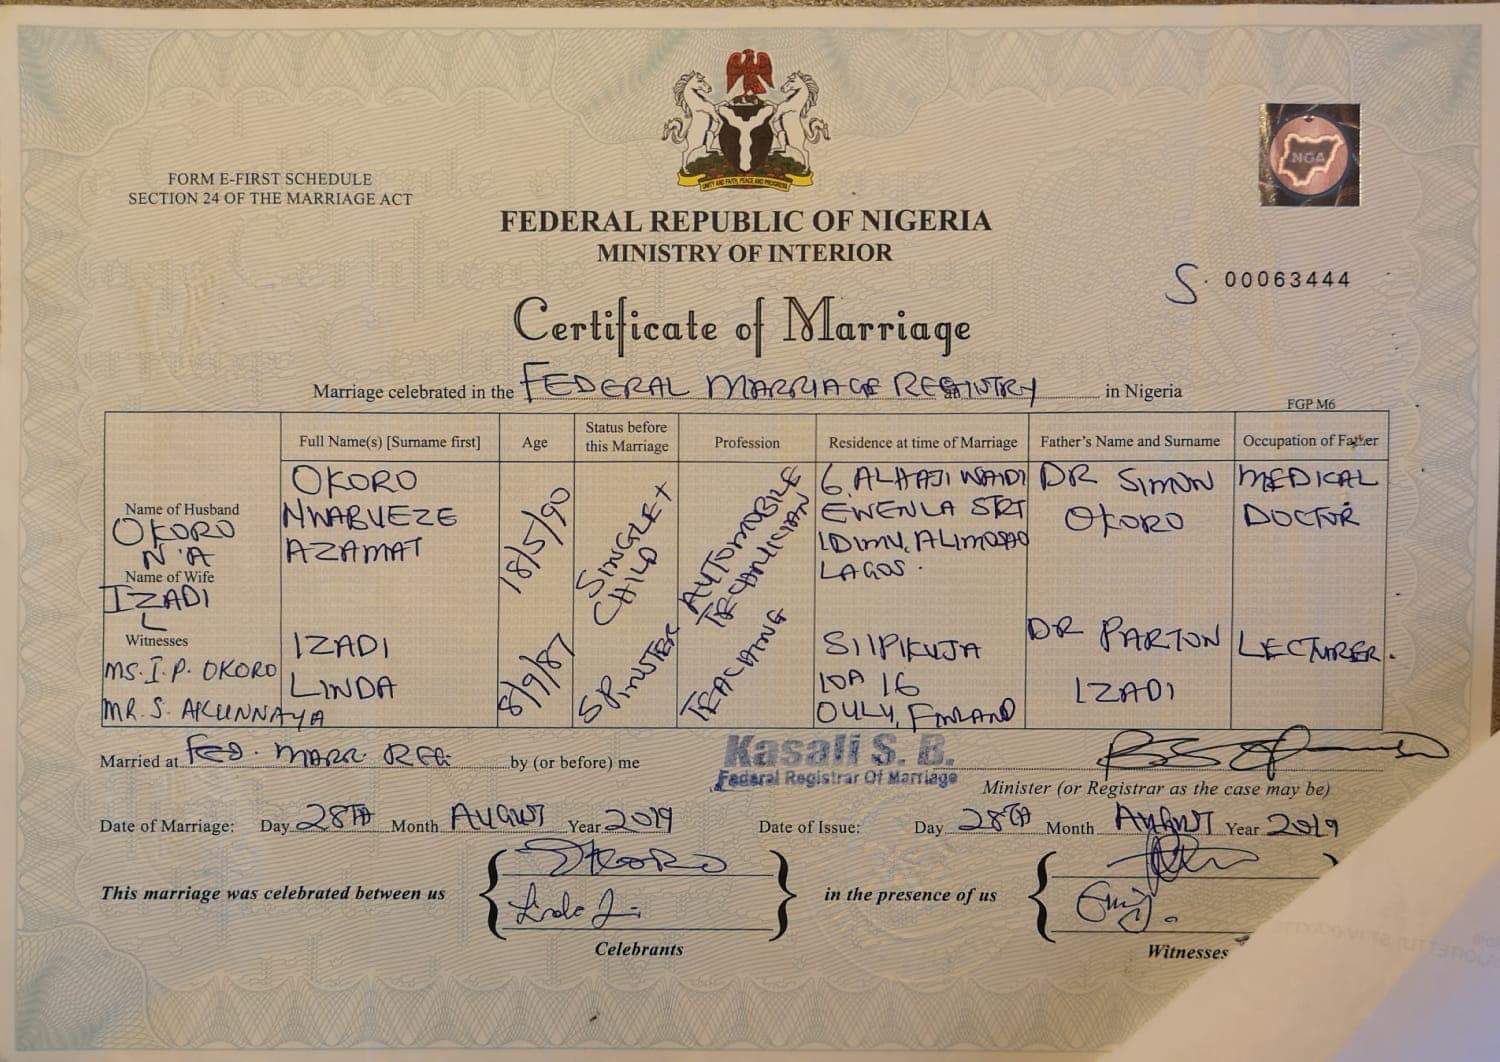 UNITY AND FAITH, PEACE AND PROGRESS
NGA
FORM E-FIRST SCHEDULE
SECTION 24 OF THE MARRIAGE ACT
FEDERAL REPUBLIC OF NIGERIA
MINISTRY OF INTERIOR
S. 00063444
Certificate of Marriage
Marriage celebrated in the FEDERAL MARRIAGE REGISTRY in Nigeria
FGP M6
Full Name(s) [Surname first] Age Status before this Marriage Profession Residence at time of Marriage Father's Name and Surname Occupation of Father
Name of Husband
OKORO
N A
OKORO
NWABUEZE
AZAMAT
18/5/90
SINGLE
CHILD
AUTOMOBILE
TECHNICIAN
6, ALHAJI WAIDI
EWENLA STR
IDIMU, ALIMOSHO
LAGOS.
DR SIMON
OKORO
MEDICAL
DOCTOR
Name of Wife
IZADI
L
IZADI
LINDA
8/9/87
SPINSTER
TEACHING
10A 16
OULU, FINLAND
DR PARTON
IZADI
LECTURER.
Witnesses
MS. I. P. OKORO
MR. S. AKUNNAYA
Married at FED. MARR. REG. by (or before) me
Kasali S. B.
Federal Registrar Of Marriage
Minister (or Registrar as the case may be)
Date of Marriage: Day 28TH Month AUGUST Year 2019 Date of Issue: Day 28TH Month AUGUST Year 2019
This marriage was celebrated between us
in the presence of us
Celebrants
Witnesses